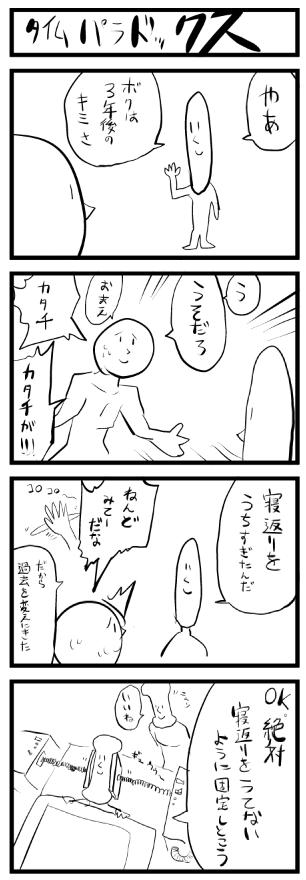 タイムパラドックス
やあ
ボクは
3年後の
キミさ
う
うそだろ
おまえ
カタチ
カタチが!!!
寝返りを
うちすぎたんだ
ねんど
みてーだな
コロコロ
だから
過去を変えにきた
OK.絶対
寝返りをうてない
ように固定しとこう
いいね